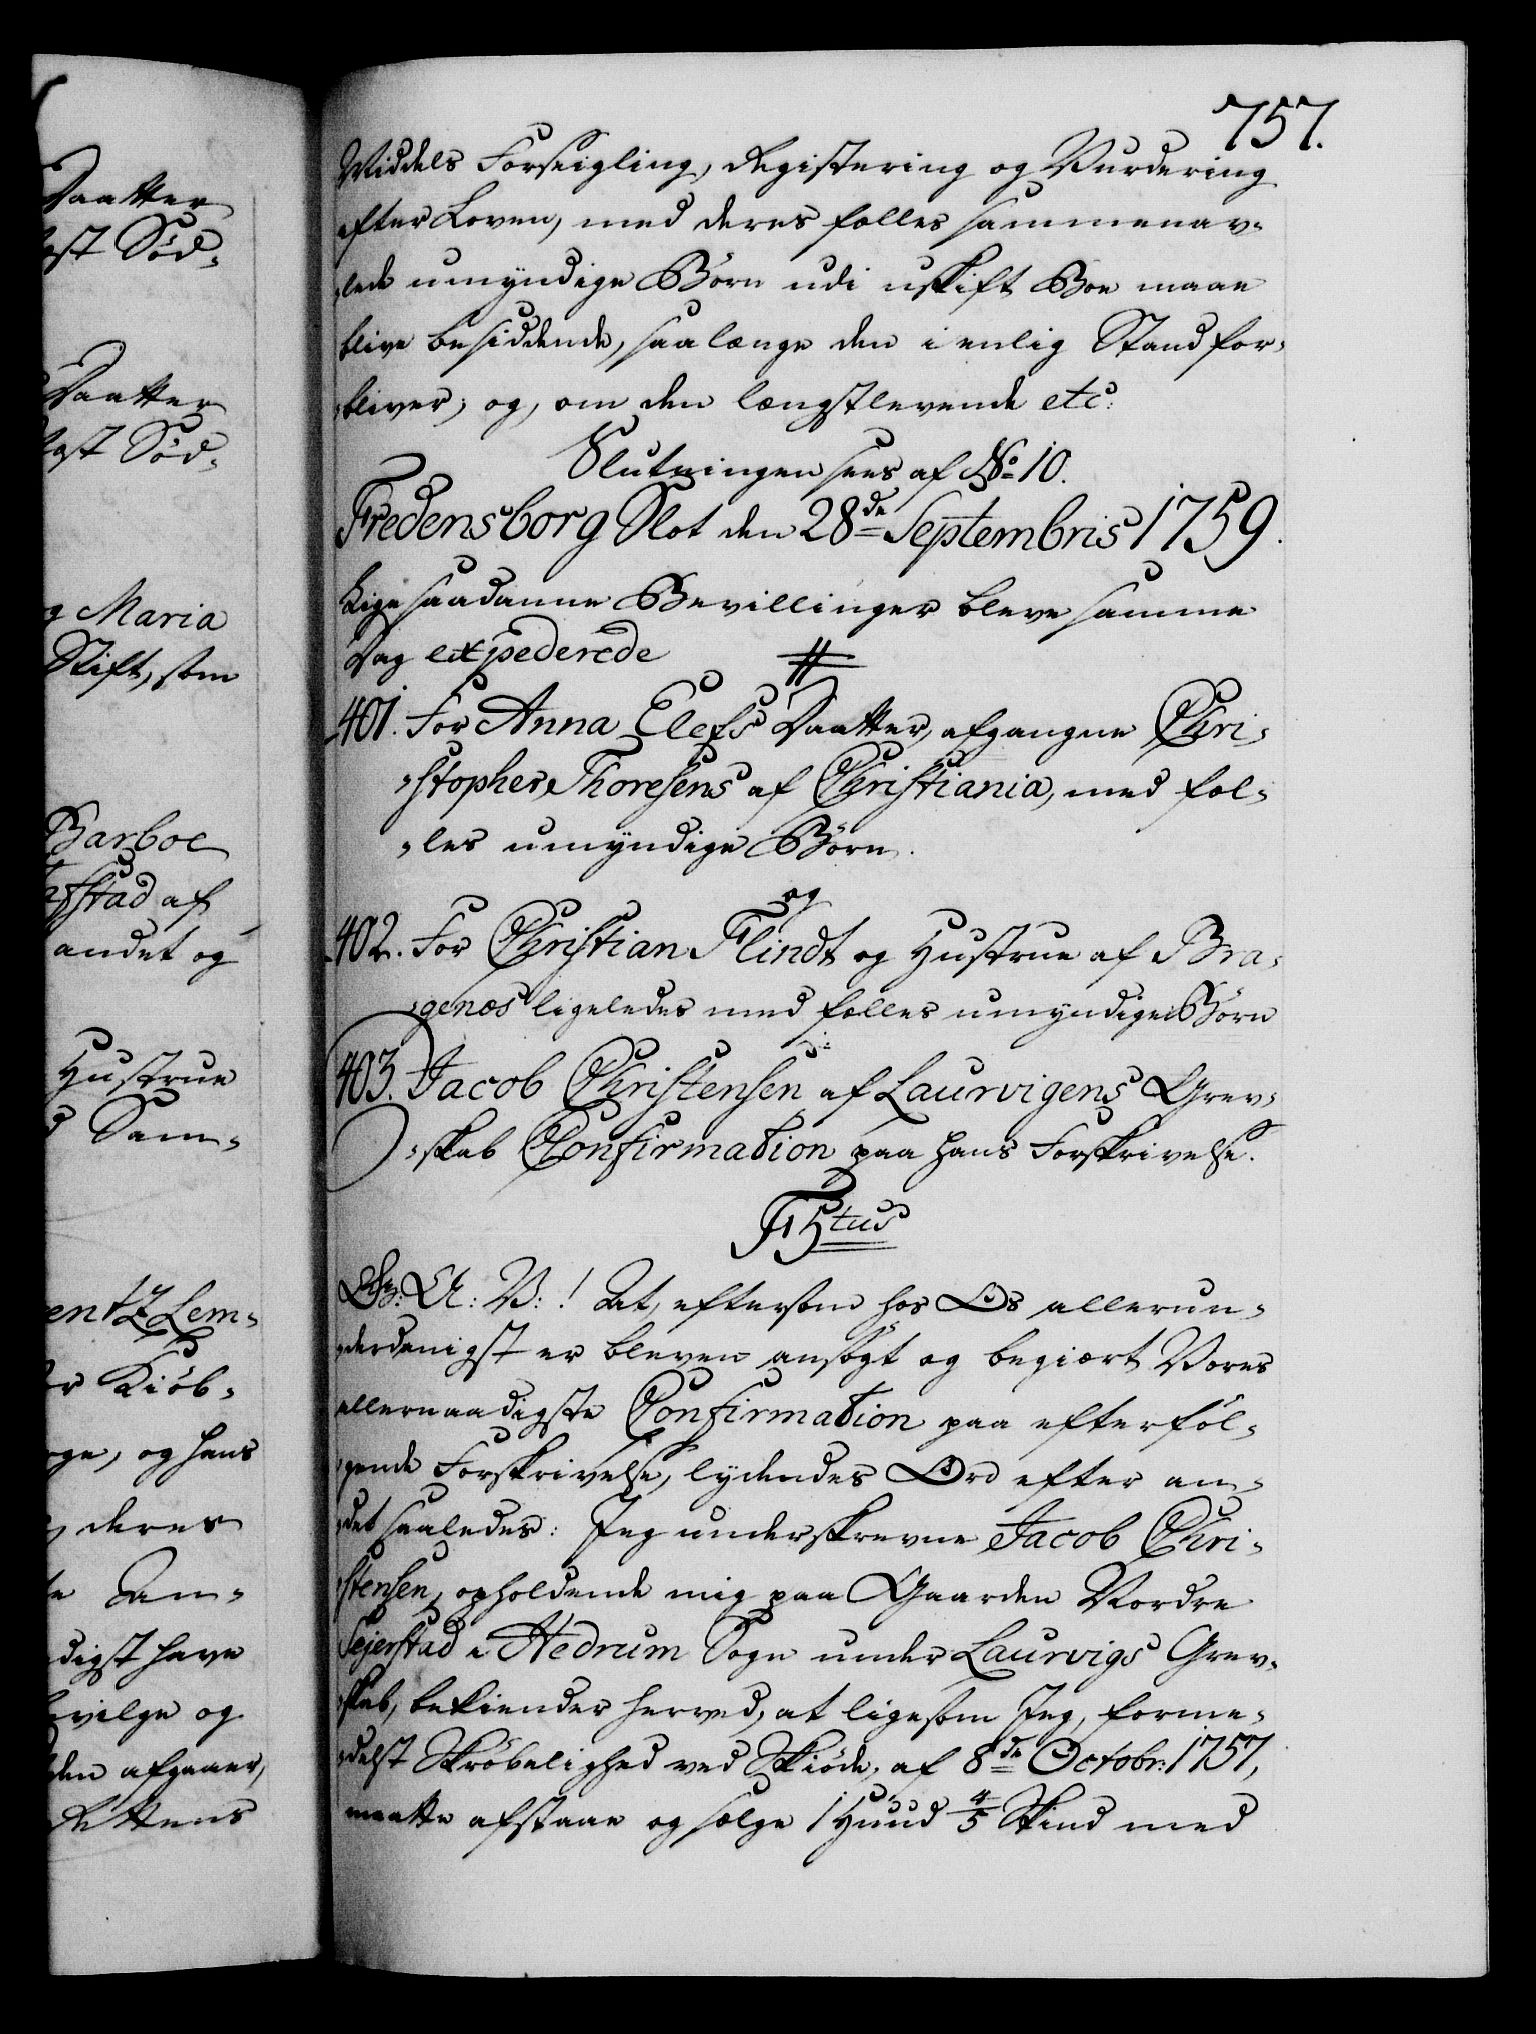 757.
Middels Forseigling, Registering og Vurdering
efter Loven, med deres fælles sammenav-
lede umyndige Børn udi uskift Boe maae
blive besiddende, saalænge den i enlig Stand for-
bliver; og, om den længstlevende etc:
Slutningen sees af No 10.
Fredensborg Slot den 28de Septembris 1759.
Ligesaadanne Bevillinger bleve samme
Dag expederede
401. For Anna Elefs Daatter, afgangne Chri-
stopher Thoresens af Christiania, med fæl-
les umyndige Børn.
og
402. For Christian Flindt og Hustrue af Bra-
genæs ligeledes med fælles umyndige Børn
403. Jacob Christensen af Laurvigens Grev-
skab Confirmation paa hans Forskrivelse.
F 5tus
Gr: A: V: ! At, eftersom hos Os allerun-
derdanigst er bleven ansøgt og begiært Vores
allernaadigste Confirmation paa efterføl-
gende Forskrivelse, lydendes Ord efter an-
det saaledes: Jeg underskrevne Jacob Chri-
stensen, opholdende mig paa Gaarden Nordre
Sejerstad i Hedrum Sogn under Laurvigs Grev-
skab, bekiender herved, at ligesom Jeg, forme-
delst Skrøbelighed ved Skiøde, af 8de Octobr: 1757,
maatte afstaae og sælge 1 Huud 4/5 Skind med
Daatter
Sød-
Daatter
Sød-
Maria
Stift, som
Barboe
af
andet og
Hustrue
Sam-
Lem-
Kiøb-
og hans
deres
An-
have
og
den afgaaer,
Rettens